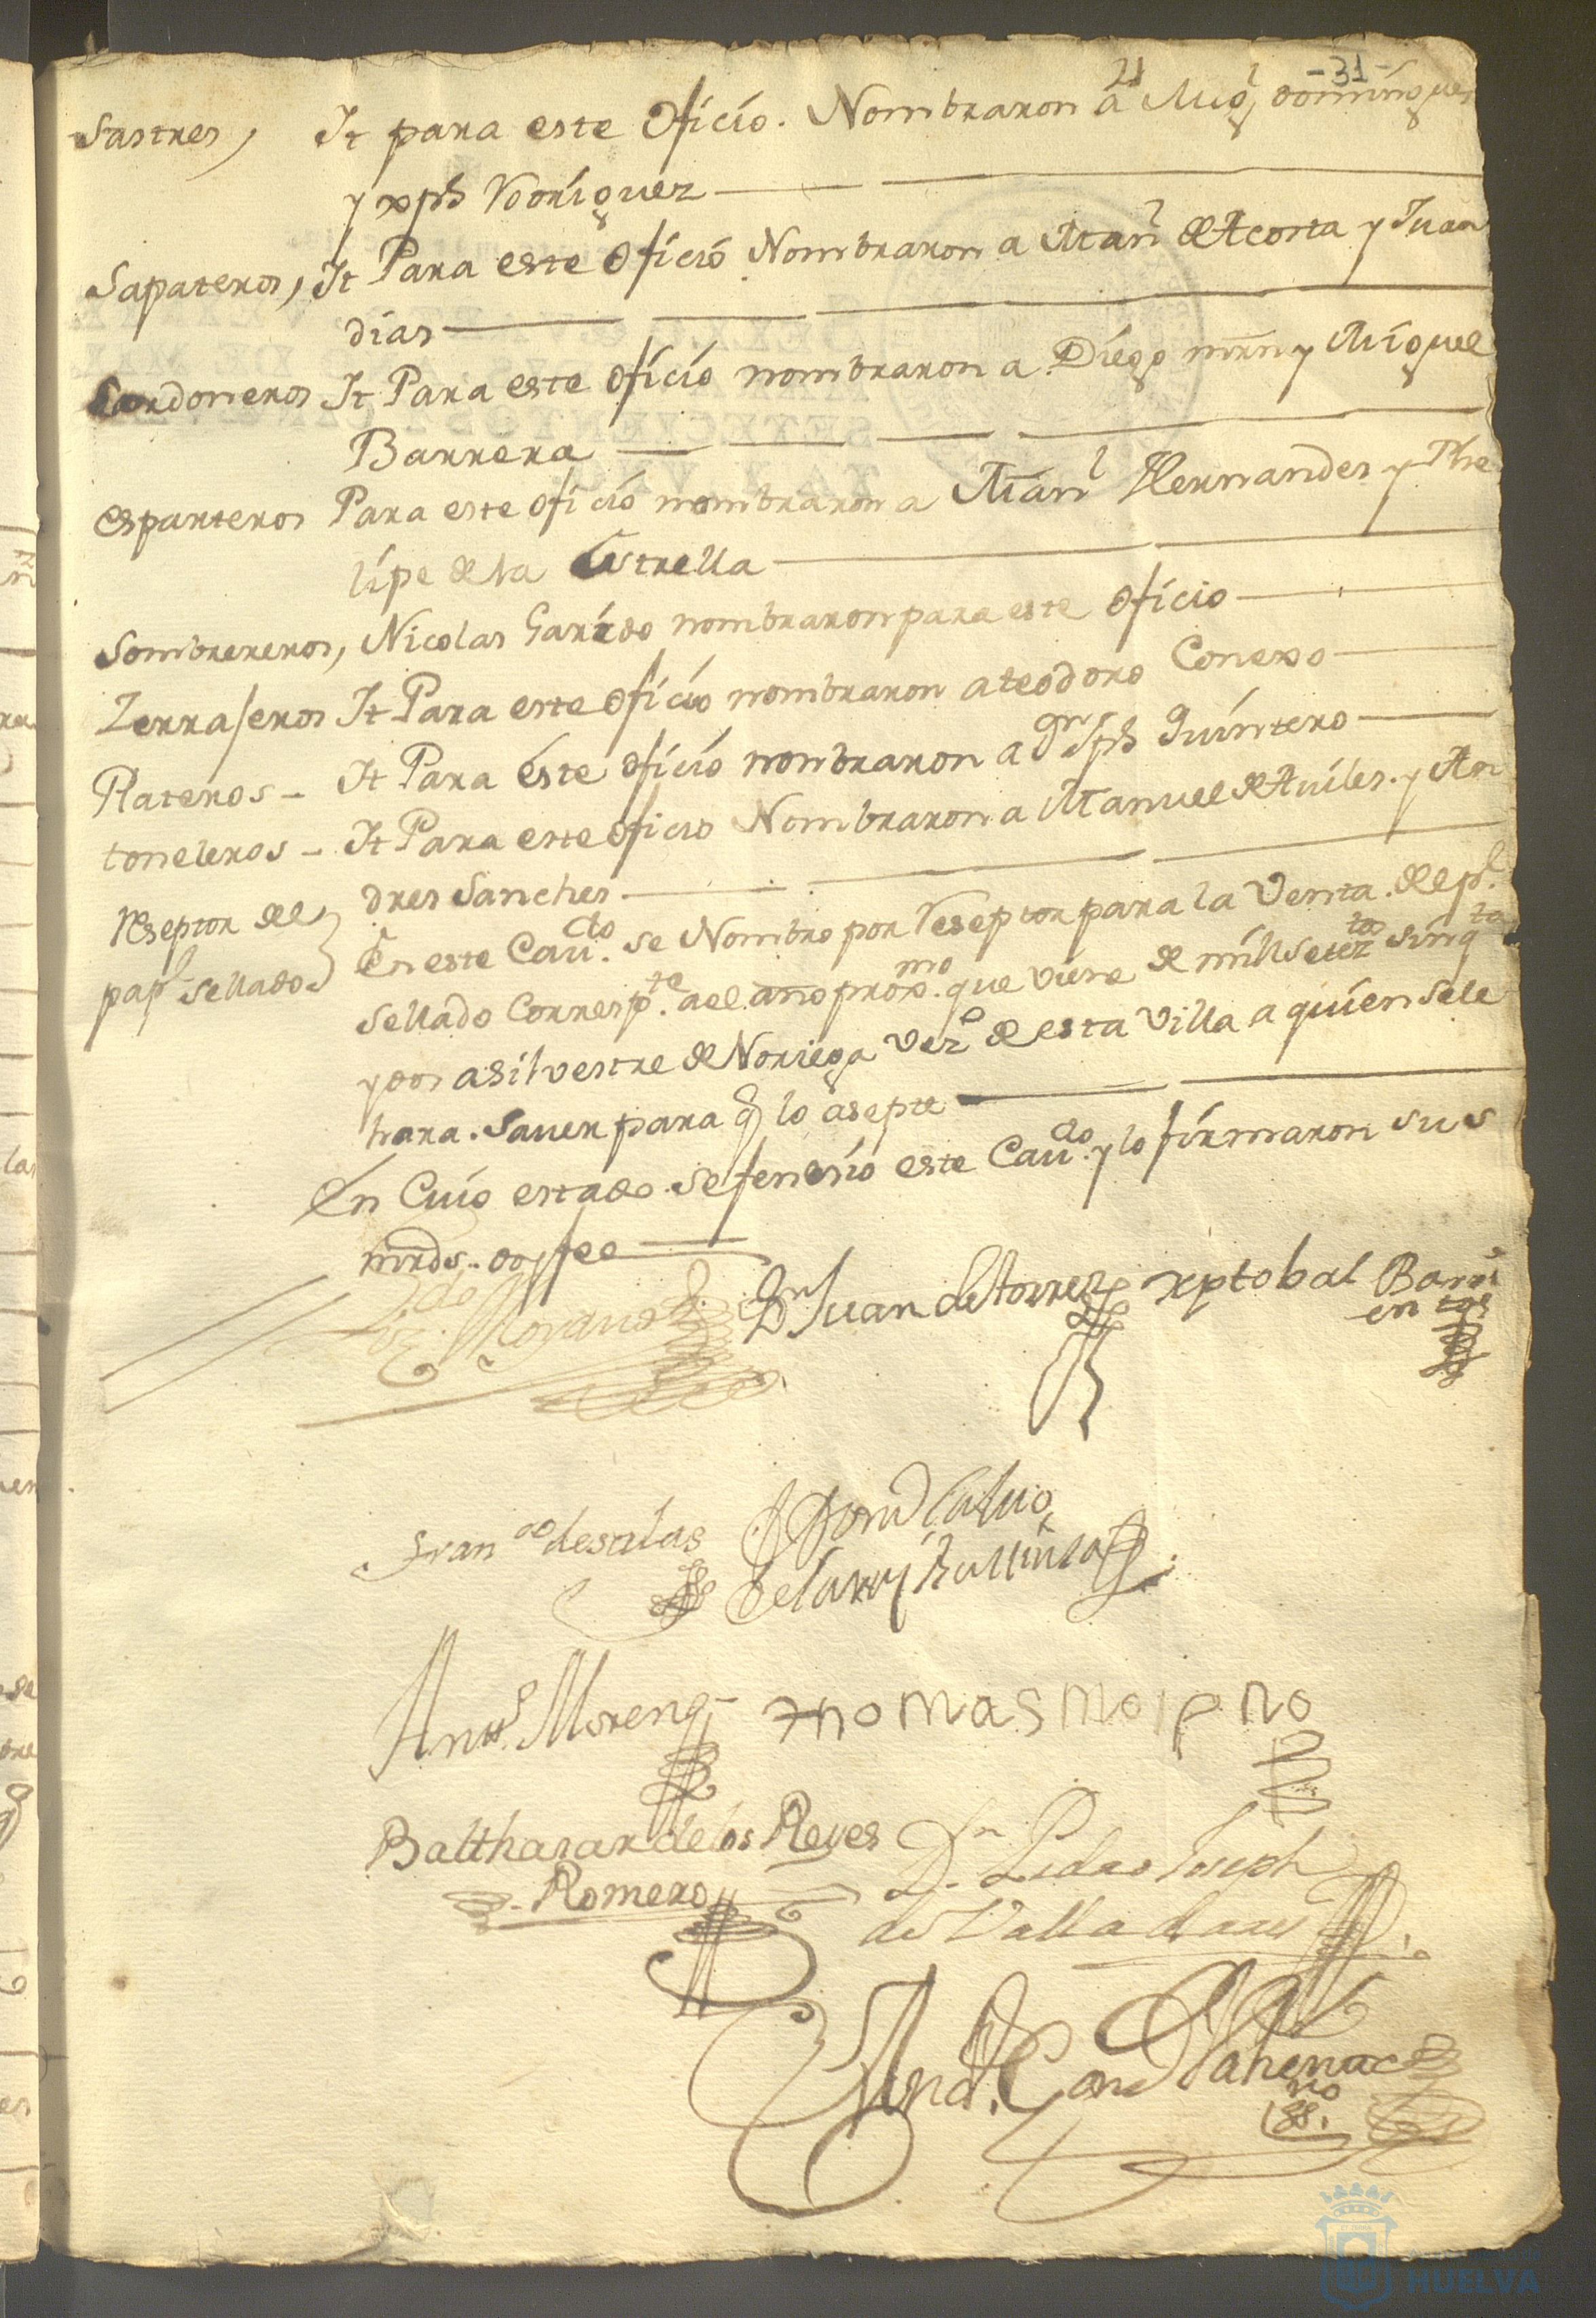 21 -31-
Sastres, It para este oficio. Nombraron a Migl domingues
y xpl Rodriguez
Sapateros, It Para este oficio Nombraron a Manl de Acosta y Juan
dias
Cardoneros It Para este oficio nombraron a Diego mrn y Miguel
Barrera
esparteros Para este oficio nombraron a Manl Hernandes y Phe
lipe de la Estrella
Sombrereros, Nicolas Garrido nombraron para este oficio
Zerrajeros It Para este oficio nombraron a teodoro Conexo
Plateros - It Para este oficio nonbraron a Dn Jph Quintero
toneleros - It Para este oficio Nombraron a Manuel de Aviles. y An
dres Sanches
Reseptor del papl sellado En este Cavdo. se Nombro por Reseptor para la Venta. del pl.
sellado Correspte. a el año proxmo. que viene de mill setezos sinqta
y dos a silvestre de Noriega vezo de esta villa a quien se le
hara. saver para q lo asepte
En Cuio estado. se fenesio este Cavdo. y lo firmaron sus
mrds. doy fee
Dn Juan de torres xptobal Barri
en tos
Franco de salas
Antto. Moreno thomas moreno
Balthasar de los Reyes Dn. Pedro Joseph
Romero de Valladares
HUELVA